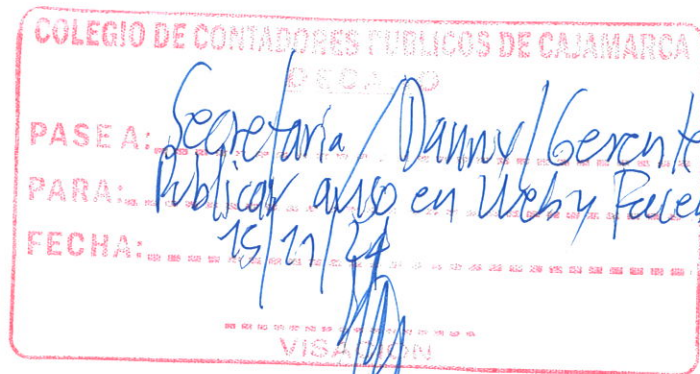 COLEGIO DE CONTADORES PUBLICOS DE CAJAMARCA
DECANO
PASE A: Secretaria / Danny / Gerente
PARA: Publicar aviso en Web y
FECHA: 15/11/24
VISACION